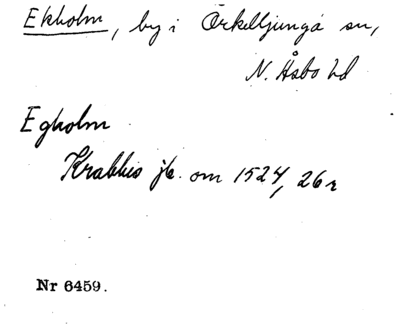 Ekholm, by i Örkelljunga sn,
N. Åsbo hd
Egholm
Krabbes jb. om 1524, 26r
Nr 6459.